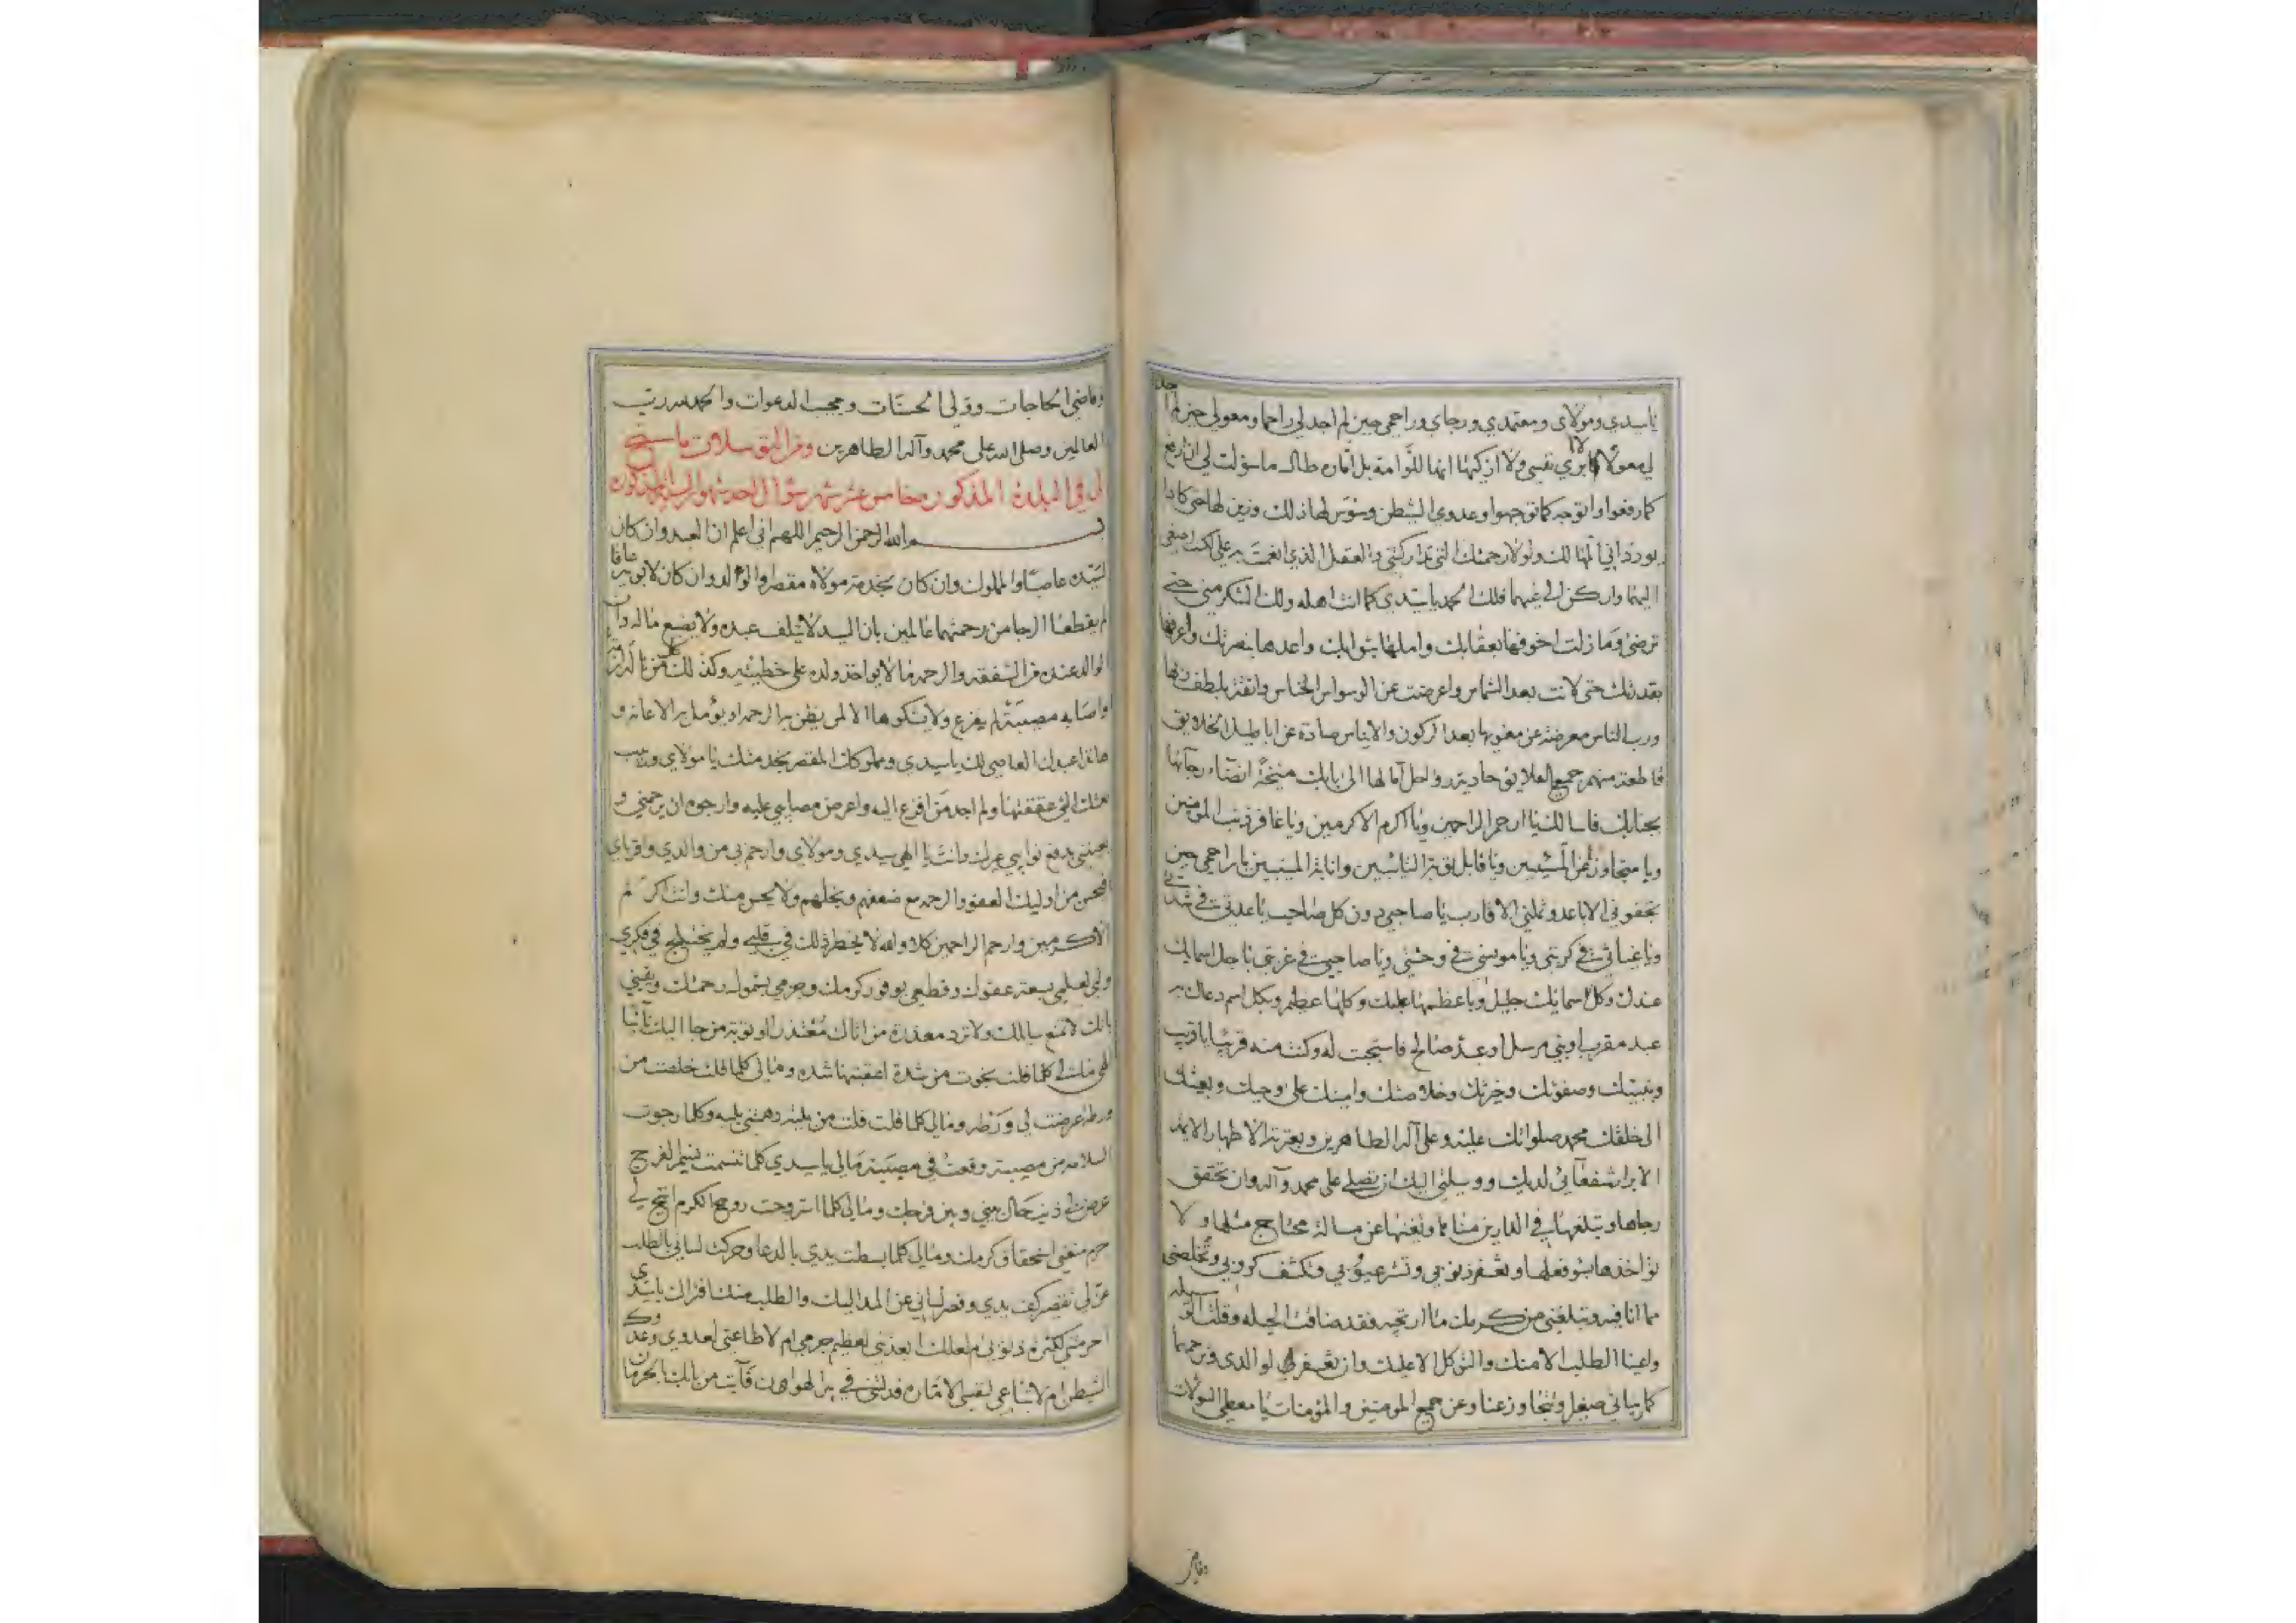 يا سيدي ومولاي ومعتمدي ورجاي وراحمي حين لم اجد لي راحما ومعولي حين لم اجد
لي معولا لا ابري نفسي ولا ازكيها انها للوامة بل امارة طال ما سولت لي ان ارتع
كما رتعوا واتوجه كما توجهوا وعدوي الشيطن وسوس لها ذلك وزين لها حتى كادا
يورداني المهالك ولولا رحمتك التي تداركتني والعقل الذي انعمت به علي لكنت اصغى
اليهما واركن الى غيهما فلك الحمد يا سيدي كما انت اهله ولك الشكر مني حتى
ترضى وما زلت اخوفها بعقابك واملها بثوابك واعدها بنصرتك واعرفها
بقدرتك حتى لانت بعد الشماس واعرضت عن الوسواس الخناس واثقة بلطف ربها
ورب الناس معرضة عن مغويها بعد الركون والايناس صادة عن اباطيل الخلايق
قاطعة منهم جميع العلايق حادية رواحل آمالها الى بابك منيخة انضاء رجآئها
بجنابك فاسالك يا ارحم الراحمين ويا اكرم الاكرمين ويا غافر ذنب المؤمنين
ويا متجاوزا عن المسيئين ويا قابل توبة التائبين وانابة المنيبين يا راحمي حين
تجفوني الاباعد وتملني الاقارب يا صاحبي دون كل صاحب يا عدتي في شدتي
ويا غياثي في كربتي ويا مونسي في وحشتي ويا صاحبي في غربتي باجل اسمايك
عندك وكل اسمائك جليل وباعظمها عليك وكلها عظيم وبكل اسم دعاك به
عبد مقرب او نبي مرسل او عبد صالح فاستجبت له وكنت منه قريبا يا قريب
وبنبيك وصفوتك وخيرتك وخلاصتك وامينك على وحيك وبعيثك
الى خلقك محمد صلواتك عليه وعلى آله الطاهرين وبعترته الاطهار الائمة
الابرار شفعآئي لديك ووسيلتي اليك ان تصلي على محمد وآله وان تحقق
رجاها وتبلغها في الدارين مناها وتغنها عن مسالة محتاج مثلها ولا
تواخذها بسوء فعلها وتغفر ذنوبي وتستر عيوبي وتكشف كروبي وتخلصني
مما انا فيه وتبلغني من كرمك ما ارتجيه فقد ضاقت الحيله وقلت الوسيله
واعيانا الطلب الا منك والتوكل الا عليك وان تغفر لي لوالدي وترحمهما
كما ربياني صغيرا وتتجاوز عنا وعن جميع المومنين والمؤمنات يا معطي السؤلات
وقاضي
وقاضي الحاجات وولي الحسنات ومجيب الدعوات والحمد لله رب
العالمين وصلى الله على محمد وآله الطاهرين ومن التوسلات ما سنح
لي في البلدة المذكورة خامس عشر شهر شوال احد شهور السنة المذكورة
بسم الله الرحمن الرحيم اللهم اني اعلم ان العبد وان كان
لسيده عاصيا والمملوك وان كان بخدمة مولاه مقصرا والولد وان كان لابويه عاقا
لم يقطعا الرجا من رحمتهما عالمين بان السيد لا يتلف عبده ولا يضيع ماله وان
الوالد عنده من الشفقة والرحمة ما لا يواخذ ولده على خطيئته وكذلك من
واصابه مصيبة لم يفزع ولا يشكوها الا لمن يظن به الرحمة او يؤمل به الاعانة و
ها انا عبدك العاصي لك يا سيدي ومملوكك المقصر بخدمتك يا مولاي
ولم اجد من افزع اليه واعرض مصابي عليه وارجوه ان يرحمني و
يعينني بدفع نوايبي غيرك وانت يا الهي سيدي ومولاي وارحم بي من والدي واقرباي
فيحسن من اوليك العفو والرحمة مع ضعفهم وبخلهم ولا يحسن منك وانت اكرم
الاكرمين وارحم الراحمين كلا والله لا يخطر ذلك في قلبي ولم يختلج في فكري
لعلمي بسعة عفوك وقطعي بوفور كرمك وجزمي بشمول رحمتك ويقيني
بانك لا تمنع سايلك ولا ترد معذرة من اتاك معتذرا او توبة من جا اليك تائبا
كلما قلت نجوت من شدة اعقبتها شدة ومالي كلما قلت خلصت من
ورطة عرضت لي ورطة ومالي كلما قلت فلت من بلية دهمتني بليه وكلما رجوت
السلامة من مصيبة وقعت في مصيبة مالي يا سيدي كلما تنسمت نسيم الفرج
عرض لي ذنب حال بيني وبين فرجك ومالي كلما استروحت روح الكرم اتيح لي
جرم منعني استحقاق كرمك ومالي كلما بسطت يدي بالدعا وحركت لساني بالطلب
عن لي تقصير كف يدي وقصر لساني عن المد اليك والطلب منك افتراك يا سيدي
احرمتني لكثرة ذنوبي ام لعلك ابعدتني لعظيم جرمي ام لا طاعتي لعدوي وعدوك
الشيطن ام لاتباعي لنفسي الامارة قد في بئر الهوا من بابك بالحرمان